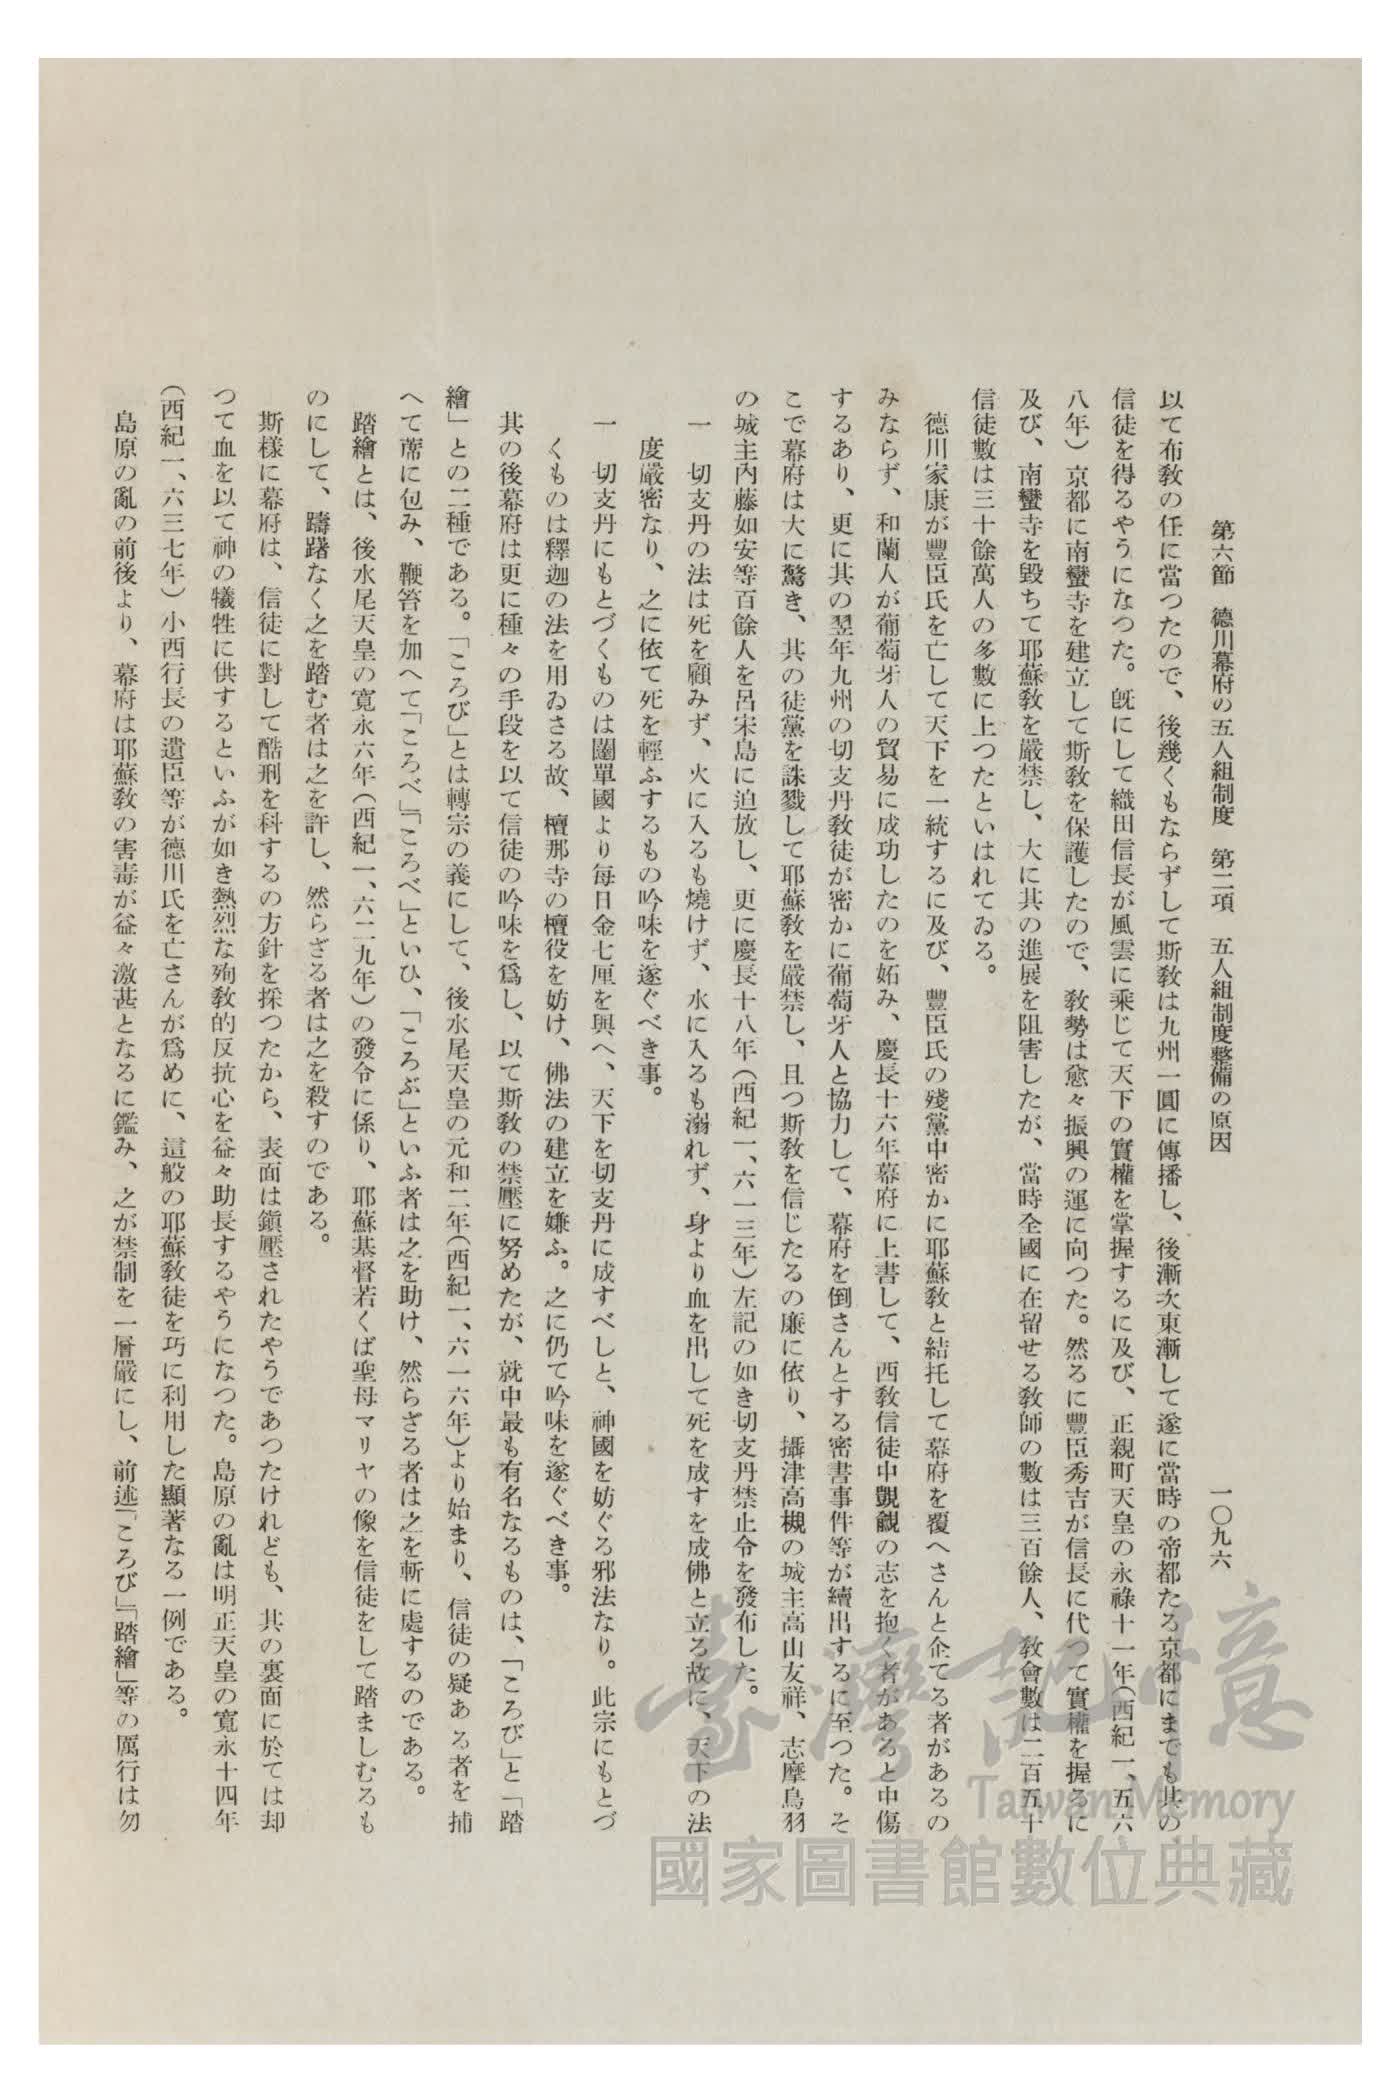 第六節　德川幕府の五人組制度　第二項　五人組制度整備の原因
一〇九六
以て布教の任に當つたので、後幾くもならずして斯教は九州一圓に傳播し、後漸次東漸して遂に當時の帝都たる京都にまでも其の
信徒を得るやうになつた。既にして織田信長が風雲に乘じて天下の實權を掌握するに及び、正親町天皇の永祿十一年(西紀一、五六
八年)京都に南蠻寺を建立して斯教を保護したので、教勢は愈々振興の運に向つた。然るに豐臣秀吉が信長に代つて實權を握るに
及び、南蠻寺を毀ちて耶蘇教を嚴禁し、大に其の進展を阻害したが、當時全國に在留せる教師の數は三百餘人、教會數は二百五十
信徒數は三十餘萬人の多數に上つたといはれてゐる。
德川家康が豐臣氏を亡して天下を一統するに及び、豐臣氏の殘黨中密かに耶蘇教と結托して幕府を覆へさんと企てる者があるの
みならず、和蘭人が葡萄牙人の貿易に成功したのを妬み、慶長十六年幕府に上書して、西教信徒中覬覦の志を抱く者があると中傷
するあり、更に其の翌年九州の切支丹教徒が密かに葡萄牙人と協力して、幕府を倒さんとする密書事件等が續出するに至つた。そ
こで幕府は大に驚き、其の徒黨を誅戮して耶蘇教を嚴禁し、且つ斯教を信じたるの廉に依り、攝津高槻の城主高山友祥、志摩鳥羽
の城主内藤如安等百餘人を呂宋島に迫放し、更に慶長十八年(西紀一、六一三年)左記の如き切支丹禁止令を發布した。
一　切支丹の法は死を顧みず、火に入るも燒けず、水に入るも溺れず、身より血を出して死を成すを成佛と立る故に、天下の法
度嚴密なり、之に依て死を輕ふするもの吟味を遂ぐべき事。
一　切支丹にもとづくものは闥單國より每日金七厘を與へ、天下を切支丹に成すべしと、神國を妨ぐる邪法なり。此宗にもとづ
くものは釋迦の法を用ゐさる故、檀那寺の檀役を妨け、佛法の建立を嫌ふ。之に仍て吟味を遂ぐべき事。
其の後幕府は更に種々の手段を以て信徒の吟味を爲し、以て斯教の禁壓に努めたが、就中最も有名なるものは、「ころび」と「踏
繪」との二種である。「ころび」とは轉宗の義にして、後水尾天皇の元和二年(西紀一、六一六年)より始まり、信徒の疑ある者を捕
へて蓆に包み、鞭笞を加へて「ころべ」「ころべ」といひ、「ころぶ」といふ者は之を助け、然らざる者は之を斬に處するのである。
踏繪とは、後水尾天皇の寬永六年(西紀一、六二九年)の發令に係り、耶蘇基督若くば聖母マリヤの像を信徒をして踏ましむるも
のにして、躊躇なく之を踏む者は之を許し、然らざる者は之を殺すのである。
斯樣に幕府は、信徒に對して酷刑を科するの方針を採つたから、表面は鎭壓されたやうであつたけれども、其の裏面に於ては却
つて血を以て神の犧牲に供するといふが如き熱烈な殉教的反抗心を益々助長するやうになつた。島原の亂は明正天皇の寬永十四年
(西紀一、六三七年)小西行長の遺臣等が德川氏を亡さんが爲めに、這般の耶蘇教徒を巧に利用した顯著なる一例である。
島原の亂の前後より、幕府は耶蘇教の害毒が益々激甚となるに鑑み、之が禁制を一層嚴にし、前述「ころび」「踏繪」等の厲行は勿
臺灣記憶
Taiwan Memory
國家圖書館數位典藏